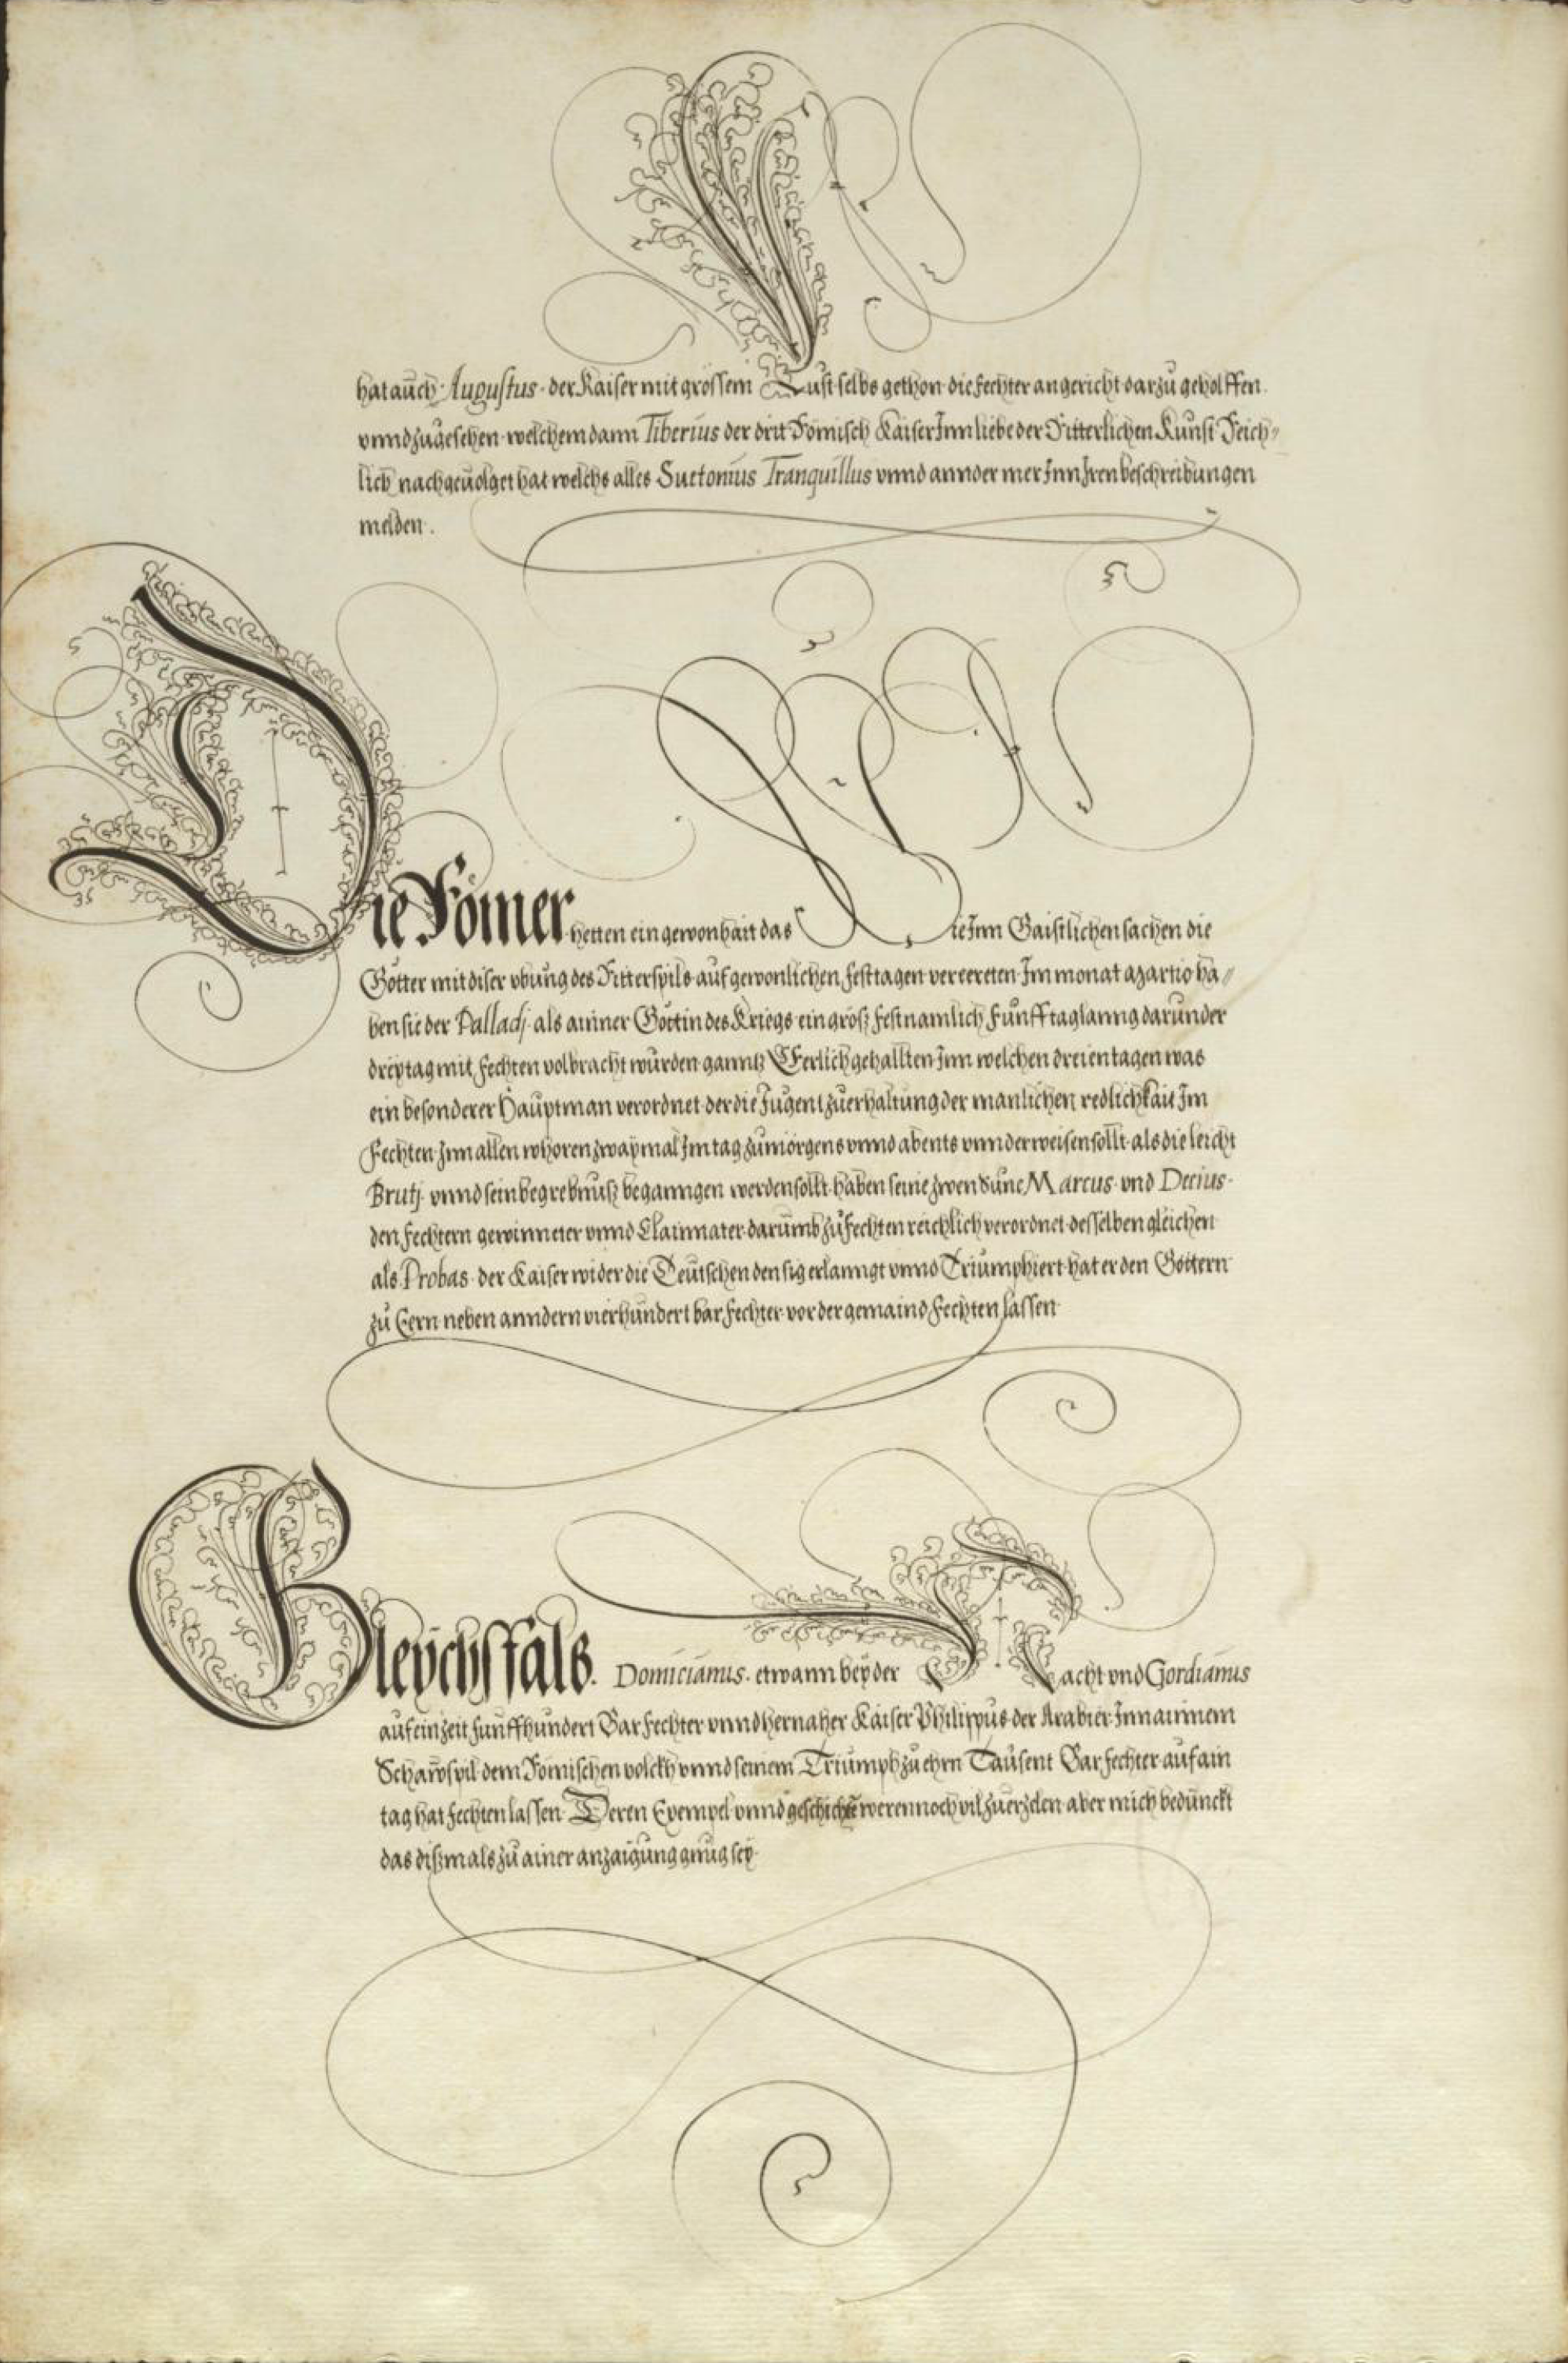 hat auch Augustus der Kaiser mit grossem Lust selbs gethon die Fechter angericht darzů geholffen
vnnd zůgesehen welchem dann Tiberius der drit Römisch Kaiser Inn liebe der Ritterlichen Kunst Reich-
lich nachgeuolget hat welchs alles Suetonius Tranquillus vnnd annder mer Inn Iren beschreibungen
melden.
Die Römer hetten ein gewonhait das Sie Inn Gaistlichen sachen die
Götter mit diser vbung des Ritterspils auf gewonlichen festtagen vereereten Im monat Martio ha-
ben sie der Palladj als ainner Göttin des Kriegs ein groß fest namlich Funff tag lanng darunder
drey tag mit Fechten volbracht wurden ganntz Eerlich gehallten Inn welchen dreien tagen was
ein besonderer Hauptman verordnet der die Jugent zu erhaltung der manlichen redlichkait Im
Fechten Inn allen whoren zwaymal Im tag zu morgens vnnd abents vnnderweisen sollt als die leicht
Brutj vnnd sein begrebnuß begangen werden sollt haben seine zwen Süne Marcus vnd Decius
den Fechtern gewinneter vnnd Clainnater darumb zů Fechten reichlich verordnet desselben gleichen
als Probas der Kaiser wider die Teutschen den sig erlanngt vnnd Triumphiert hat er den Göttern
zů Eern neben anndern vierhundert bar Fechter vor der gemaind Fechten lassen
Gleychsfals Domicianus etwann bey der Nacht vnd Gordianus
auf ein zeit funffhundert Bar Fechter vnnd hernaher Kaiser Philippus der Arabier Inn ainnem
Schawspil dem Römischen volckh vnnd seinem Triumph zu ehrn Tausent Bar Fechter auf ain
tag hat Fechten lassen Deren Exempel vnnd geschichte weren noch vil zu erzelen aber mich bedunckt
das dißmals zů ainer anzaigung gnug sey